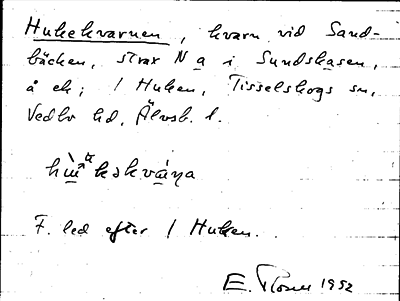 Hukekvarnen, kvarn vid Sand-
bäcken, strax N a i Sundskasen,
å ek; / Huken, Tisselskogs sn,
Vedbo hd, Älvsb. l.
F. led efter / Huken.
E. 1952